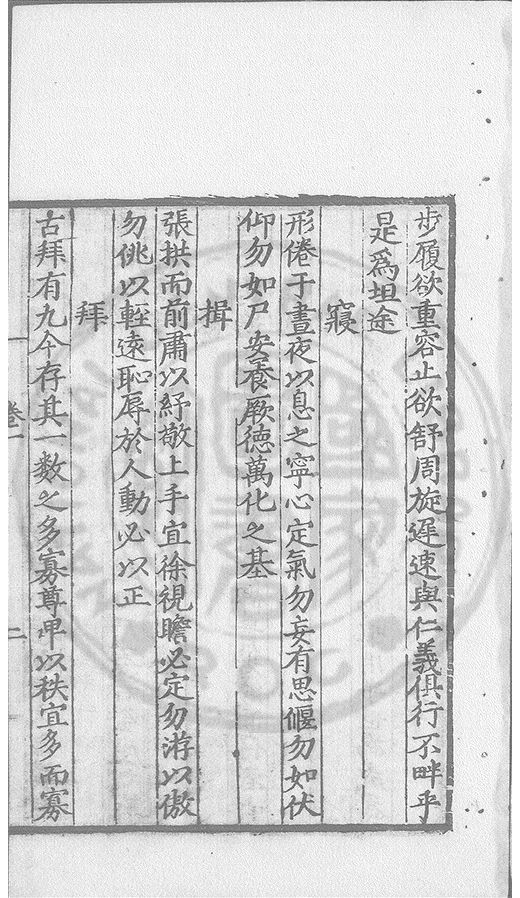 步履欲重容止欲舒周旋遲速與仁義俱行不畔乎
是爲坦途
寢
形倦于晝夜以息之寧心定氣勿妄有思偃勿如伏
仰勿如尸安養厥德萬化之基
揖
張拱而前肅以紓敬上手宜徐視瞻必定勿游以傲
勿佻以輕遠恥辱於人動必以正
拜
古拜有九今存其一數之多寡尊卑以秩宜多而寡
卷一
二